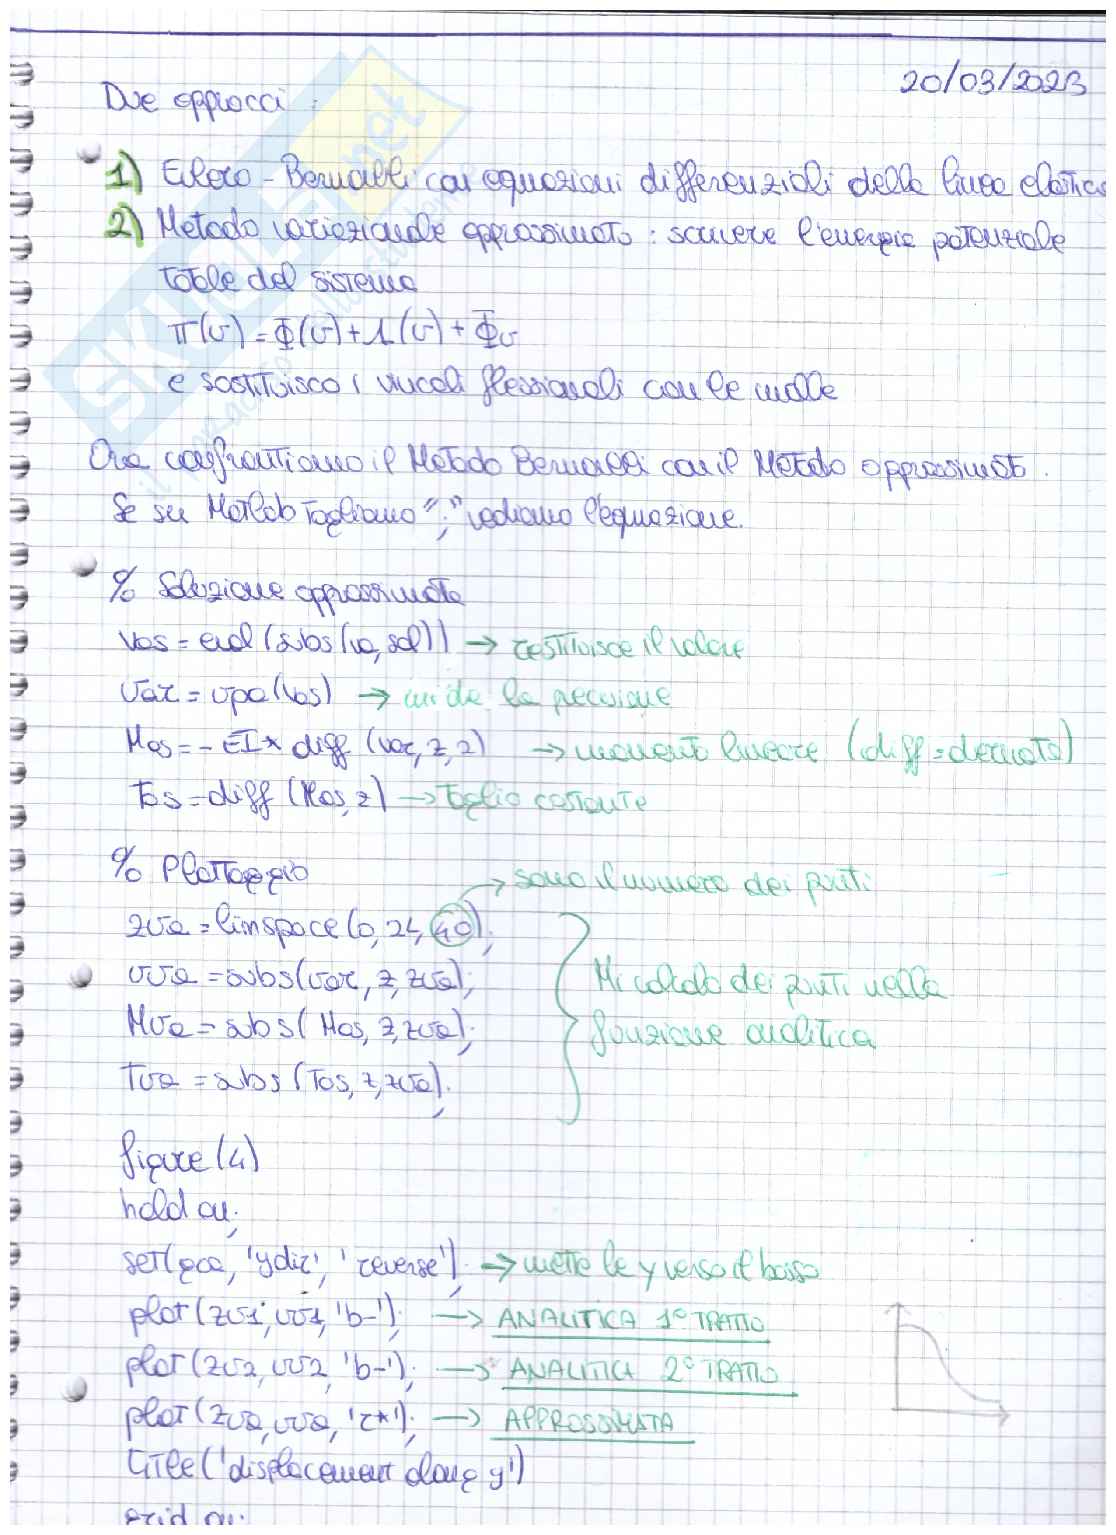 20/03/2023
Due approcci:
1) Eulero-Bernoulli con equazioni differenziali della linea elastica
2) Metodo variazionale approssimato: scrivere l'energia potenziale
totale del sistema
π(v) = Φ(v) + Λ(v) + Φv
e sostituisco i vincoli flessionali con le molle
Ora confrontiamo il Metodo Bernoulli con il Metodo approssimato.
Se su Matlab togliamo ";" vediamo l'equazione.
% Soluzione approssimata
vas = eval(subs(va, sol)) → restituisce il valore
var = vpa(vas) → mi da la precisione
Mas = - EI * diff (var, z, 2) → momento lineare (diff = derivata)
Tas = diff (Mas, z) → Taglio costante
% Plottaggio
→ sono il numero dei punti
zva = linspace(0, 2L, 40);
vva = subs(var, z, zva);
Mi calcolo dei punti nella
Mva = subs(Mas, z, zva);
funzione analitica
Tva = subs(Tas, z, zva);
figure(4)
hold on;
set(gca, 'ydir', 'reverse'); → mette le y verso il basso
plot(zv1, vv1, 'b-'); → ANALITICA 1° TRATTO
plot(zv2, vv2, 'b-'); → ANALITICA 2° TRATTO
plot(zva, vva, 'r*'); → APPROSSIMATA
title('displacement along y')
grid on;
SKUOLA.net